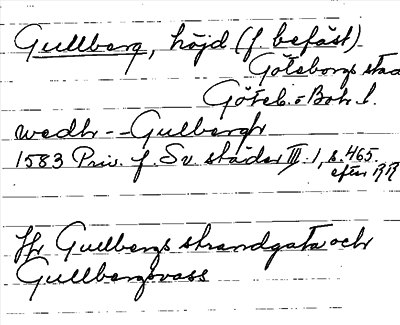 Gullberg, höjd (f. befäst)
Göteborgs stad
Göteb. o Boh. l.
wedh -- Gulbergh
1583 Priv. f. Sv städer III. 1, s. 465.
efter RR
Jfr Gullbergs strandgata och
Gullbergsvass